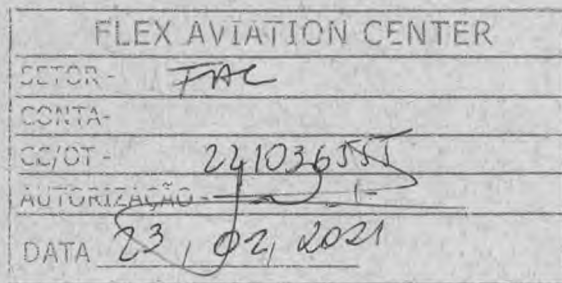 FLEX AVIATION CENTER
SETOR - FAC
CONTA-
CC/OT -
AUTORIZAÇÃO -
DATA 23, 02, 2021